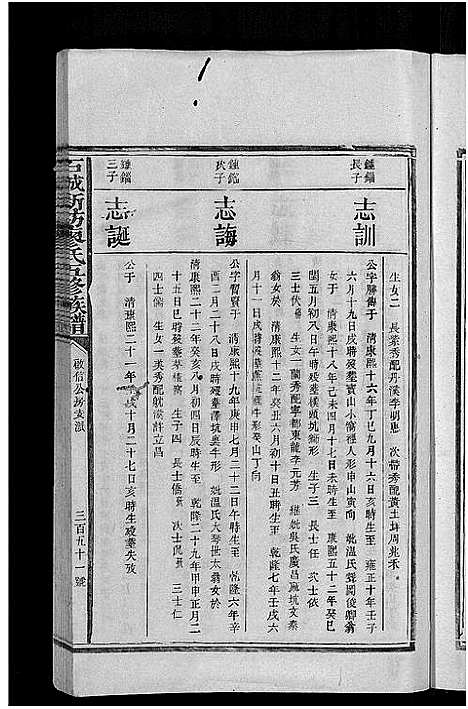 生女二 長業秀配丹溪李朋憲 次帶秀配黃土坪周兆禾
鍾鎦長子
志訓
公字勝傳于 清康熙十六年丁巳九月十六日亥時生至 雍正十年壬子
六月十九日戌時歿 寶山小窩徑人形申山寅向 妣溫氏
清康熙十八年己未四月十七日未時生至 康熙五十二年癸巳
閏五月初八日午時歿葬 獅形 生子三 長士任 次士依
三士伏 生女二 蘭秀配寧都東龍李元芳 繼妣吳氏慶昌
翁女於 清康熙十二年癸丑六月初十日丑時生至 乾隆七年壬戌六
月十一日戌時歿葬 牛形癸山丁向
鍾鎦次子
志誨
公字 于 清康熙十九年庚申七月二十二日午時生至 乾隆六年辛
酉二月二十八日戌時歿葬澤坑裏牛形 妣溫氏大琴 女於
清康熙二十二年癸亥八月初四日辰時生至 乾隆二十九年甲申正月二
十五日巳時歿葬 生子四 長士僑 次士侃 三士仁
四士儒 生女一英秀配 許立昌
鍾鎦三子
志誕
公于 清康熙二十一年 戌十月二十七日亥時生歿葬失攷
石城 坊廖氏五修族譜
啟信公房支派
三百五十一號